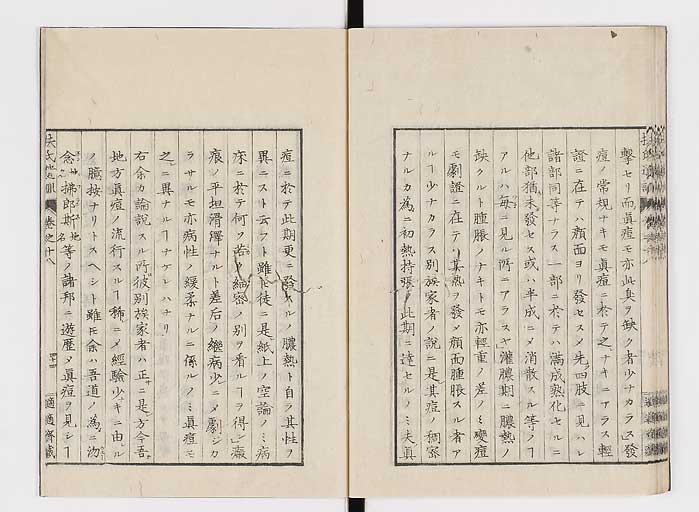 撃セリ而眞痘モ亦此臭ヲ缺ク者少ナカラス」發
痘ノ常規ナキモ眞痘ニ於テ之ナキニアラス輕
證ニ在テハ顔面ヨリ發セスメ先四肢ニ見ハレ
諸部同等ナラス一部ニ於テハ満成熟化セルニ
他部猶未發セス或ハ半成ニメ消散スル等ノヿ
アルハ毎ニ見ル所ニアラスヤ灌膿期ニ膿熱ノ
缺クル腫脹ノナキトモ亦輕重ノ差ノミ變痘
モ劇證ニ在テハ其熱ヲ發メ顔面腫脹スル者ア
ルヿ少ナカラス別族家者ノ説ニ是其痘ノ稠密
ナルカ為ニ初熱持張ノ此期ニ達セルノミ夫眞
痘ニ於テ此期更ニ發スルノ膿熱ト自ラ其性ヲ
異ニスト云フト雖𪜈徒ニ是紙上ノ空論ノミ病
床ニ於テ何ヲ苦ンテ細密ノ別ヲ看ルヿヲ得ン」瘢
痕ノ平坦滑澤ナルト差后ノ繼病少ニメ劇シカ
ラサルモ亦病性ノ緩柔ナルニ係ルノミ眞痘モ
之ニ異ナルヿナケレハナリ
右余カ論説スル所彼別族家者ハ正ニ是方今吾
地方眞痘ノ流行スルヿ稀ニメ經驗少キニ由ル
ノ臆按ナリトスヘシト雖モ余ハ吾道ノ為ニ汤
念拂郎斯等ノ諸邦ニ遊歴メ眞痘ヲ見シヿ
卷之十八
適適齋藏